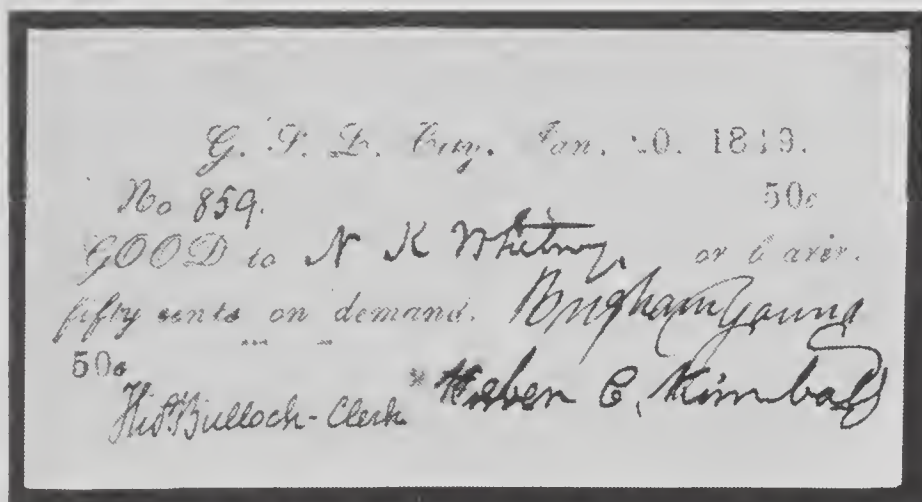 G. S. L. City, Jan. 20. 1849.
No 859. 50c
GOOD to N K Whitney, or bearer.
fifty cents on demand. Brigham Young
50c
Tho.s Bullock - Clerk Heber C. Kimball